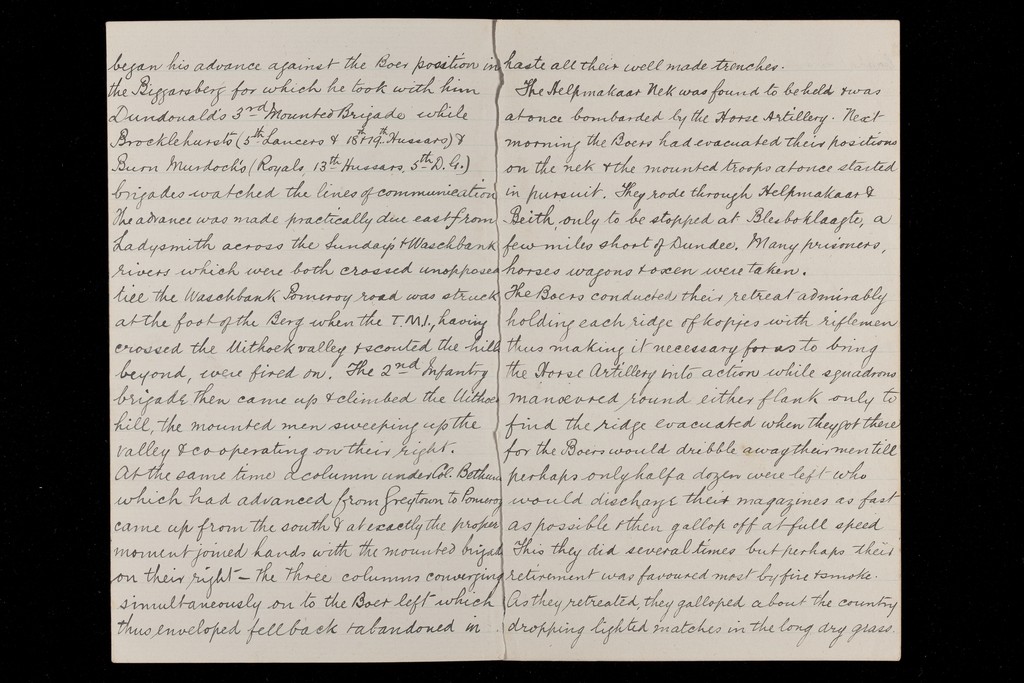 began his advance against the Boer position in
the Biggarsberg for which he took with him
Dundonald's 3rd Mounted Brigade while
Brocklehurst's (5th Lancers & 18th & 19th Hussars) &
Burn Murdoch's (Royals, 13th Hussars, 5th D.G.)
brigades watched the lines of communication
The advance was made practically due east from
Ladysmith across the Sundays & Waschbank
rivers which were both crossed unopposed
till the Waschbank Pomeroy road was struck
at the foot of the Berg when the T.M.I., having
crossed the Uithoek valley & scouted the hill
beyond, were fired on. The 2nd Infantry
brigade then came up & climbed the Uithoek
hill, the mounted men sweeping up the
valley & co operating on their right.
At the same time a column under Col. Bethune
which had advanced from Greytown to Pomeroy
came up from the south & at exactly the proper
moment joined hands with the mounted brigade
on their right – the three columns converging
simultaneously on to the Boer left which
thus enveloped fell back & abandoned in
haste all their well made trenches.
The Helpmakaar Nek was found to be held & was
at once bombarded by the Horse Artillery. Next
morning the Boers had evacuated their positions
on the nek & the mounted troops at once started
in pursuit. They rode through Helpmakaar &
Beith, only to be stopped at Blesboklaagte, a
few miles short of Dundee. Many prisoners,
horses wagons & oxen were taken.
The Boers conducted their retreat admirably
holding each ridge of kopjes with riflemen
thus making it necessary for us to bring
the Horse Artillery into action while squadrons
manœvred round either flank only to
find the ridge evacuated when they got there
for the Boers would dribble away their men till
perhaps only half a dozen were left who
would discharge their magazines as fast
as possible & then gallop off at full speed
This they did several times but perhaps their
retirement was favoured most by fire & smoke.
As they retreated, they galloped about the country
dropping lighted matches in the long dry grass.